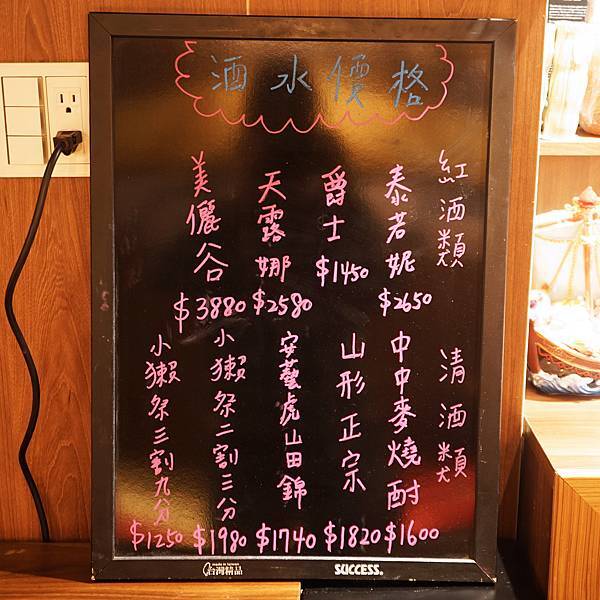 酒水價格
紅酒類
泰若妮
$2650
爵士
$1450
天露娜
$2580
美儷谷
$3880
清酒類
中中麥燒酎
$1600
山形正宗
$1820
安藝虎山田錦
$1740
小獺祭二割三分
$1980
小獺祭三割九分
$1250
made in taiwan
台灣精品
SUCCESS.